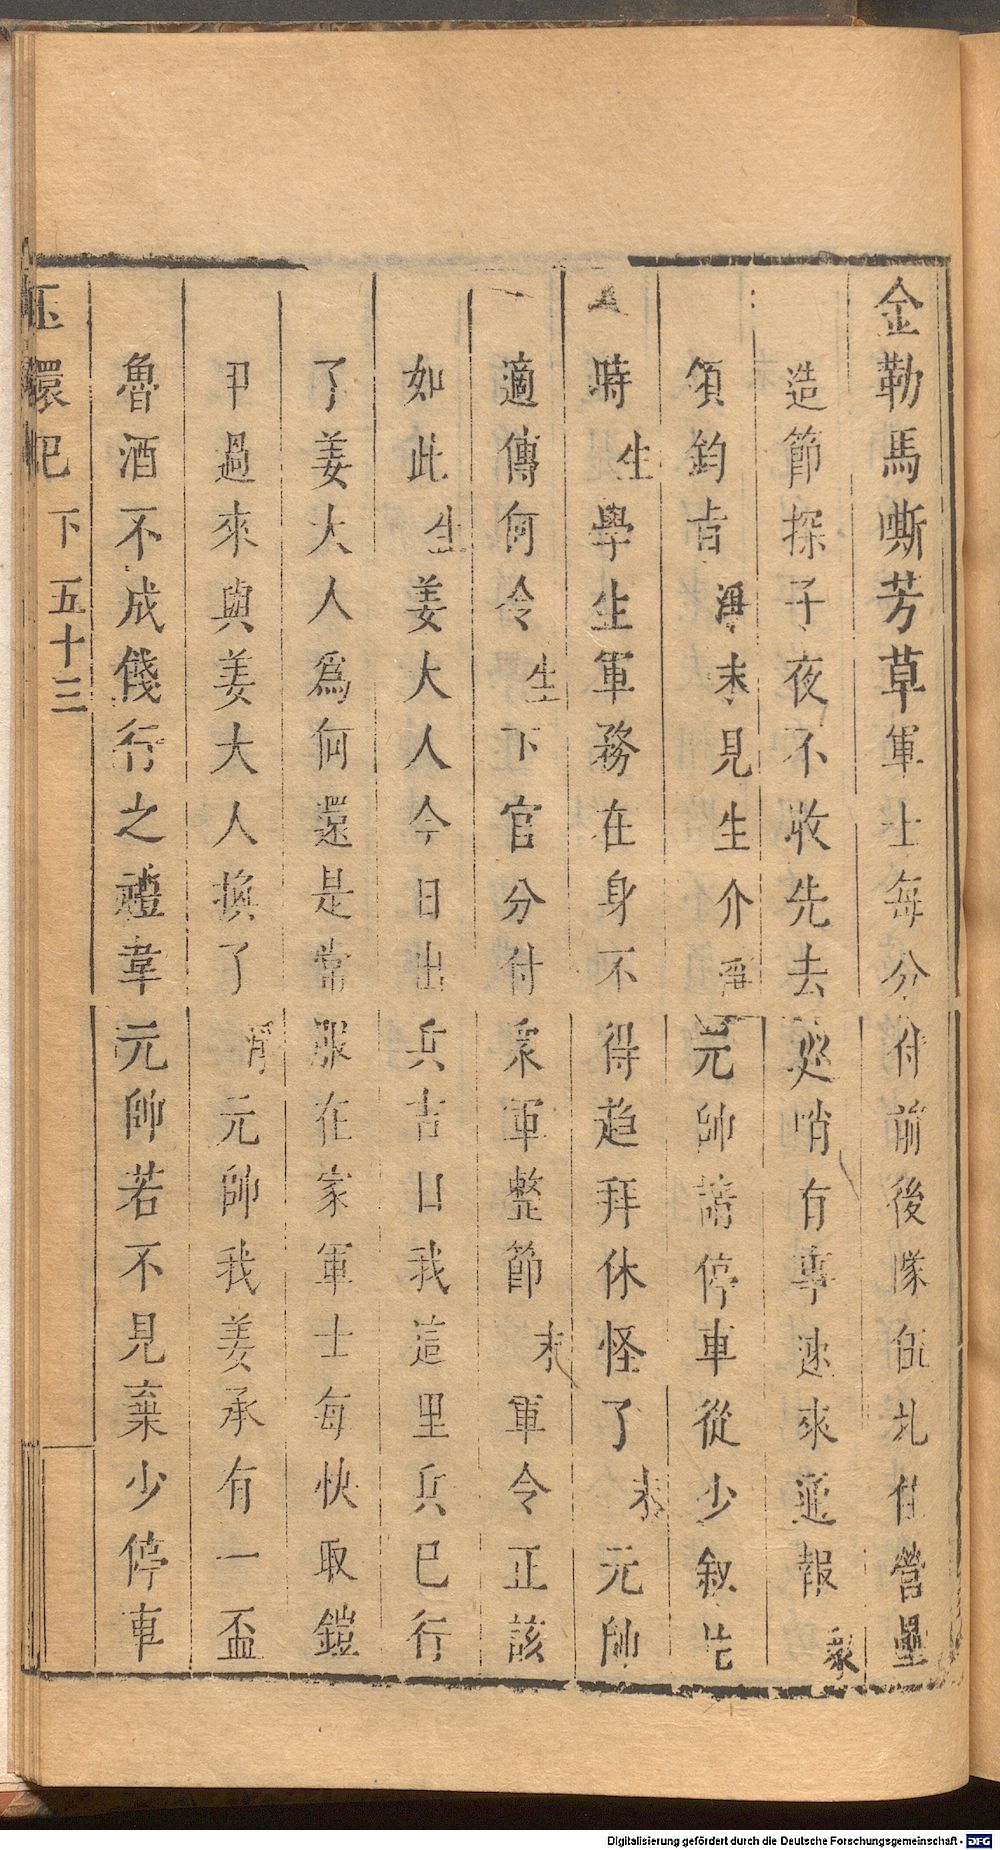 金勒馬嘶芳草軍士每分付前後隊伍扎住營壘
造節探子夜不收先去巡哨有事速來逓報衆
領鈞旨淨末見生介淨元帥請停車從少敘片
時生學生軍務在身不得趋拜休怪了末元帥
適傳何令生下官分付衆軍整節末軍令正該
如此生姜大人今日出兵吉日我這里兵已行
了姜大人爲何還是常服在家軍士每快取鎧
甲過來與姜大人換了淨元帥我姜承有一盃
魯酒不成餞行之禮韋元帥若不見棄少停車
玉環記 下 五十三
Digitalisierung gefördert durch die Deutsche Forschungsgemeinschaft - DFG